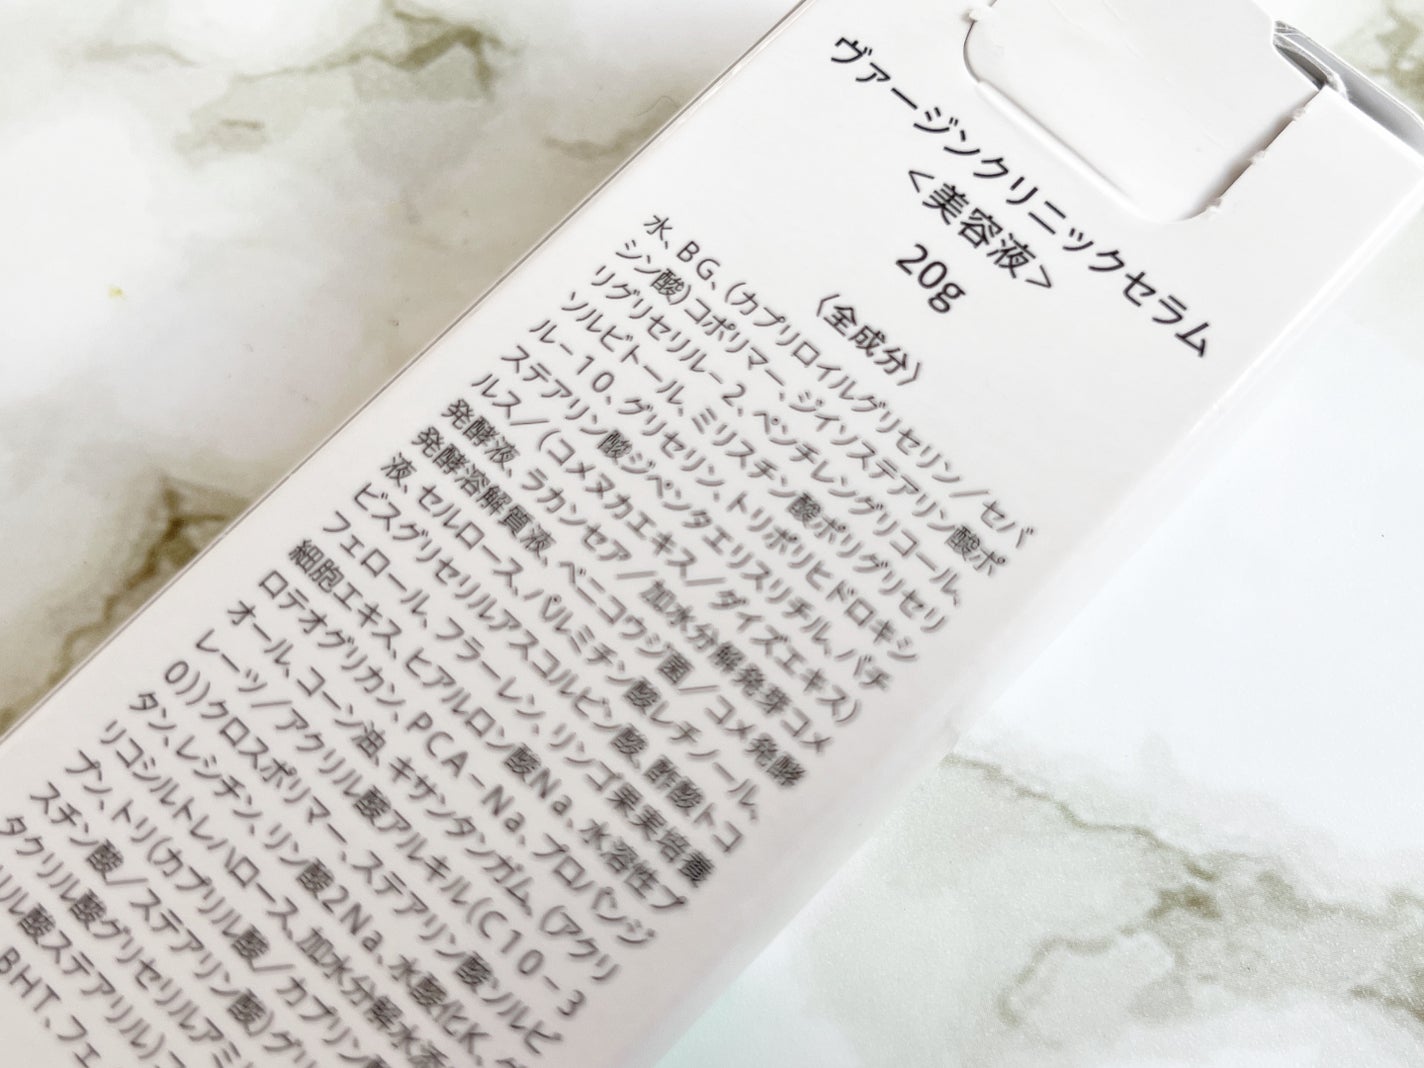 ヴァージンクリニックセラム
<美容液>
20g
〈全成分〉
水、BG、(カプリロイルグリセリン/セバ
シン酸)コポリマー、ジイソステアリン酸ポ
リグリセリル-2、ペンチレングリコール、
ソルビトール、ミリスチン酸ポリグリセリ
ル-10、グリセリン、トリポリヒドロキシ
ステアリン酸ジペンタエリスリチル、バチ
ルス/(コメヌカエキス/ダイズエキス)
発酵液、ラカンセア/加水分解発芽コメ
発酵溶解質液、ベニコウジ菌/コメ発酵
液、セルロース、パルミチン酸レチノール、
ビスグリセリルアスコルビン酸、酢酸トコ
フェロール、フラーレン、リンゴ果実培養
細胞エキス、ヒアルロン酸Na、水溶性プ
ロテオグリカン、PCA-Na、プロパンジ
オール、コーン油、キサンタンガム、(アクリ
レーツ/アクリル酸アルキル(C10-3
0))クロスポリマー、ステアリン酸ソルビ
タン、レシチン、リン酸2Na、水酸化K、グ
リコシルトレハロース、加水分解水添
ナン、トリ(カプリル酸/カプリン
スチン酸/ステアリン酸)グリ
タクリル酸グリセリルアミ
リル酸ステアリル)コ
BHT、フェ